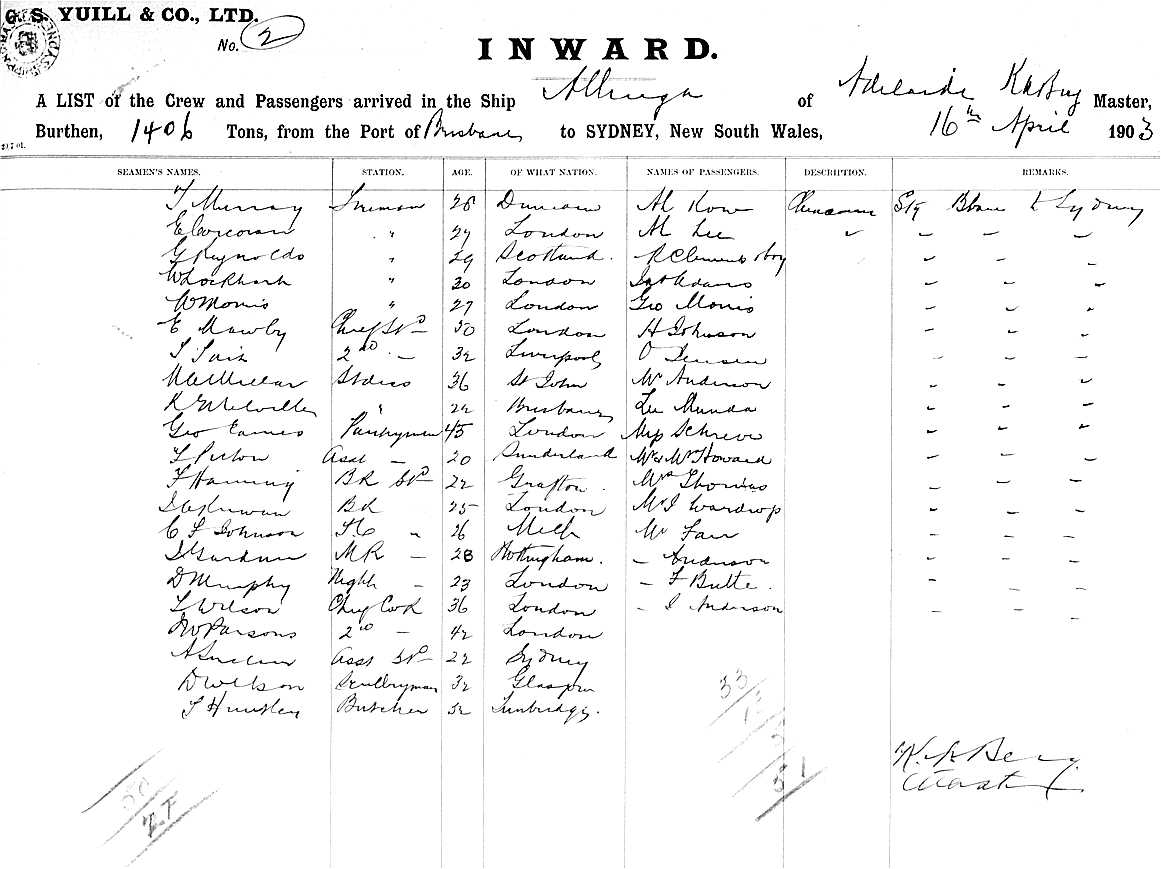 G. S. YUILL & CO., LTD.
No. 2
INWARD.
A LIST of the Crew and Passengers arrived in the Ship Allinga of Adelaide Master,
Burthen, 1406 Tons, from the Port of Brisbane to SYDNEY, New South Wales, 16th April 1903
SEAMEN'S NAMES. STATION. AGE. OF WHAT NATION. NAMES OF PASSENGERS. DESCRIPTION. REMARKS.
T Murray Fireman 28 Ah Kow Stg Bbane to Sydney
E Corcoran " 27 London Ah Lee
G Reynolds " 29 Scotland. R Clements & boy
W Lockhart " 30 London Jas Adams
W Morris " 27 London Geo Morris
E Mawby Chief Std 50 London H Johnson
2nd - 32 Liverpool O Jensen
36 St John Mr Anderson
R G Melville " 22 Brisbane
Geo Eames Pantryman 45 London
Asst - 20 Sunderland Mr & Mrs Howard
F Hanning BR Std 22 Grafton. Mrs Thomas
BR 25 London Wardrop
C F Johnson 26 Melb Mr Farr
J Gardner MR - 28 Nottingham. - Anderson
D Murphy Night - 23 London - F Butte.
T Wilson Chief Cook 36 London - J Anderson
W Parsons 2nd - 42 London
A Sinclair Asst 22 Sydney
D Wilson Scullryman 32 Glasgow
Huntley Butcher 52 Tunbridge.
33
51